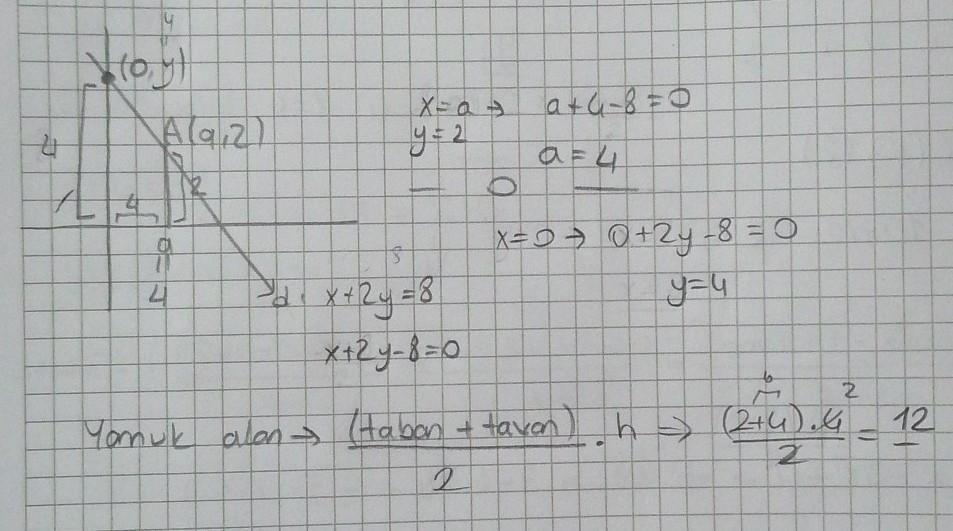 4
(0,y)
x=a → a+4-8=0
A(a,2)
y=2
4
a=4
2
4
x=0 → 0+2y-8=0
a
4
d: x+2y=8
y=4
x+2y-8=0
6
2
Yamuk alan → (taban + tavan) / 2 . h ⇒ (2+4).4 / 2 = 12